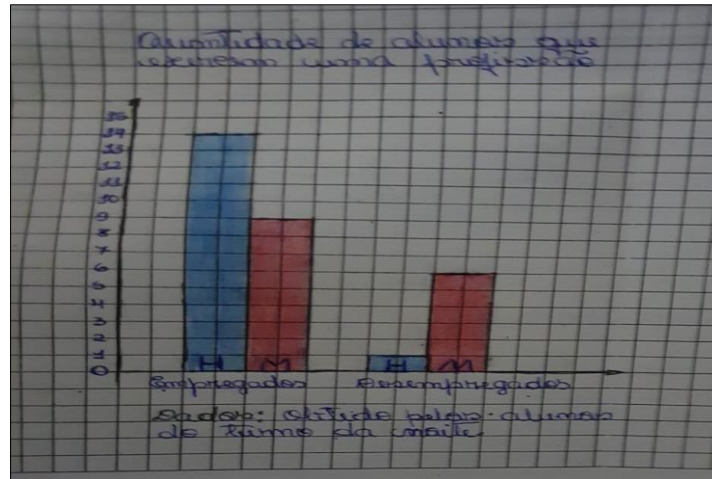 Quantidade de alunos que
exercem uma profissão
15
14
13
12
11
10
9
8
7
6
5
4
3
2
1
0
H M H M
Empregados Desempregados
Dados: obtido pelos alunos
do turno da noite